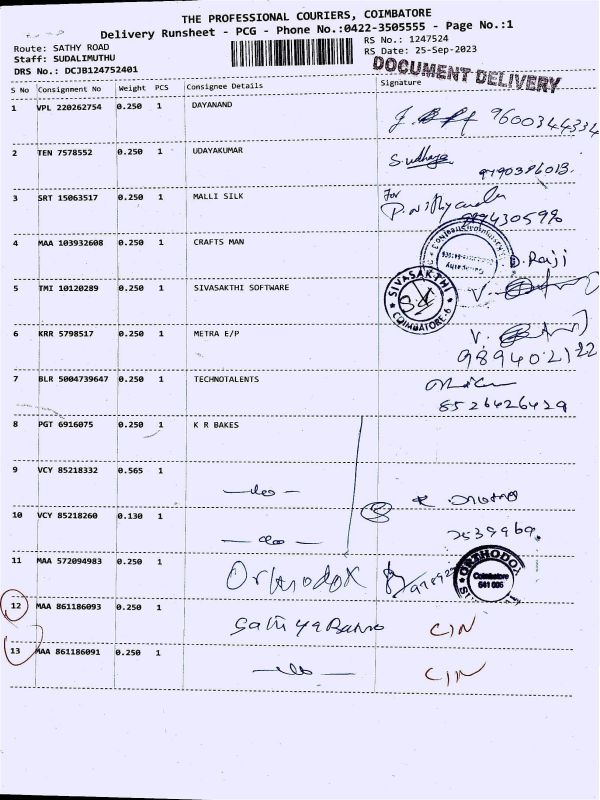 THE PROFESSIONAL COURIERS, COIMBATORE
Delivery Runsheet - PCG - Phone No.:0422-3505555 - Page No.:1
Route: SATHY ROAD
RS No.: 1247524
Staff: SUDALIMUTHU
RS Date: 25-Sep-2023
DRS No.: DCJB124752401
DOCUMENT DELIVERY
S No Consignment No Weight PCS Consignee Details Signature
1 VPL 220262754 0.250 1 DAYANAND 9600344334
2 TEN 7578552 0.250 1 UDAYAKUMAR Sudhaga
3 SRT 15063517 0.250 1 MALLI SILK For
P. Nithyanda
4 MAA 103932608 0.250 1 CRAFTS MAN D. Raji
5 TMI 10120289 0.250 1 SIVASAKTHI SOFTWARE
SIVASAKTHI
COIMBATORE-6
6 KRR 5798517 0.250 1 METRA E/P
9894021122
7 BLR 5004739647 0.250 1 TECHNOTALENTS
8526426429
8 PGT 6916075 0.250 1 K R BAKES
9 VCY 85218332 0.565 1
10 VCY 85218260 0.130 1
2539969.
11 MAA 572094983 0.250 1 Orthodox
ORTHODOX
Coimbatore
641 006
12 MAA 861186093 0.250 1 CIN
13 MAA 861186091 0.250 1 CIN